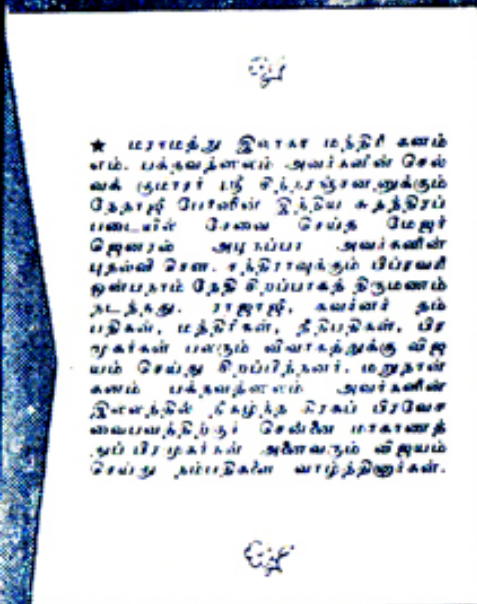 ★ மராமத்து இலாகா மந்திரி கனம்
எம். பக்தவத்ஸலம் அவர்களின் செல்
வக் குமாரர் ஸ்ரீ சித்தரஞ்சனனுக்கும்
நேதாஜி போஸின் இந்திய சுதந்திரப்
படையில் சேவை செய்த மேஜர்
ஜெனரல் அழகப்பா அவர்களின்
புதல்வி சௌ. சந்திராவுக்கும் பிப்ரவரி
ஒன்பதாம் தேதி சிறப்பாகத் திருமணம்
நடந்தது. ராஜாஜி, கவர்னர் தம்
பதிகள், மந்திரிகள், நீதிபதிகள், பிர
முகர்கள் பலரும் விவாகத்துக்கு விஜ
யம் செய்து சிறப்பித்தனர். மறுநாள்
கனம் பக்தவத்ஸலம் அவர்களின்
இல்லத்தில் நிகழ்ந்த கிரகப் பிரவேச
வைபவத்திற்குச் சென்னை மாகாணத்
துப் பிரமுகர்கள் அனைவரும் விஜயம்
செய்து தம்பதிகளை வாழ்த்தினார்கள்.